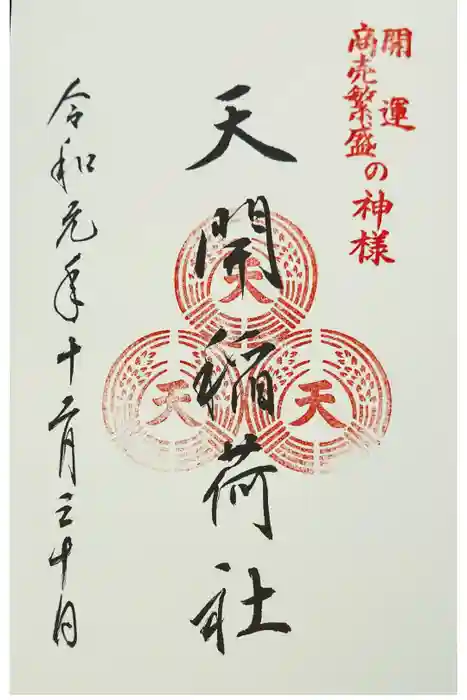 開運
商売繁盛の神様
天
天
天
天開稲荷社
令和元年十二月三十日